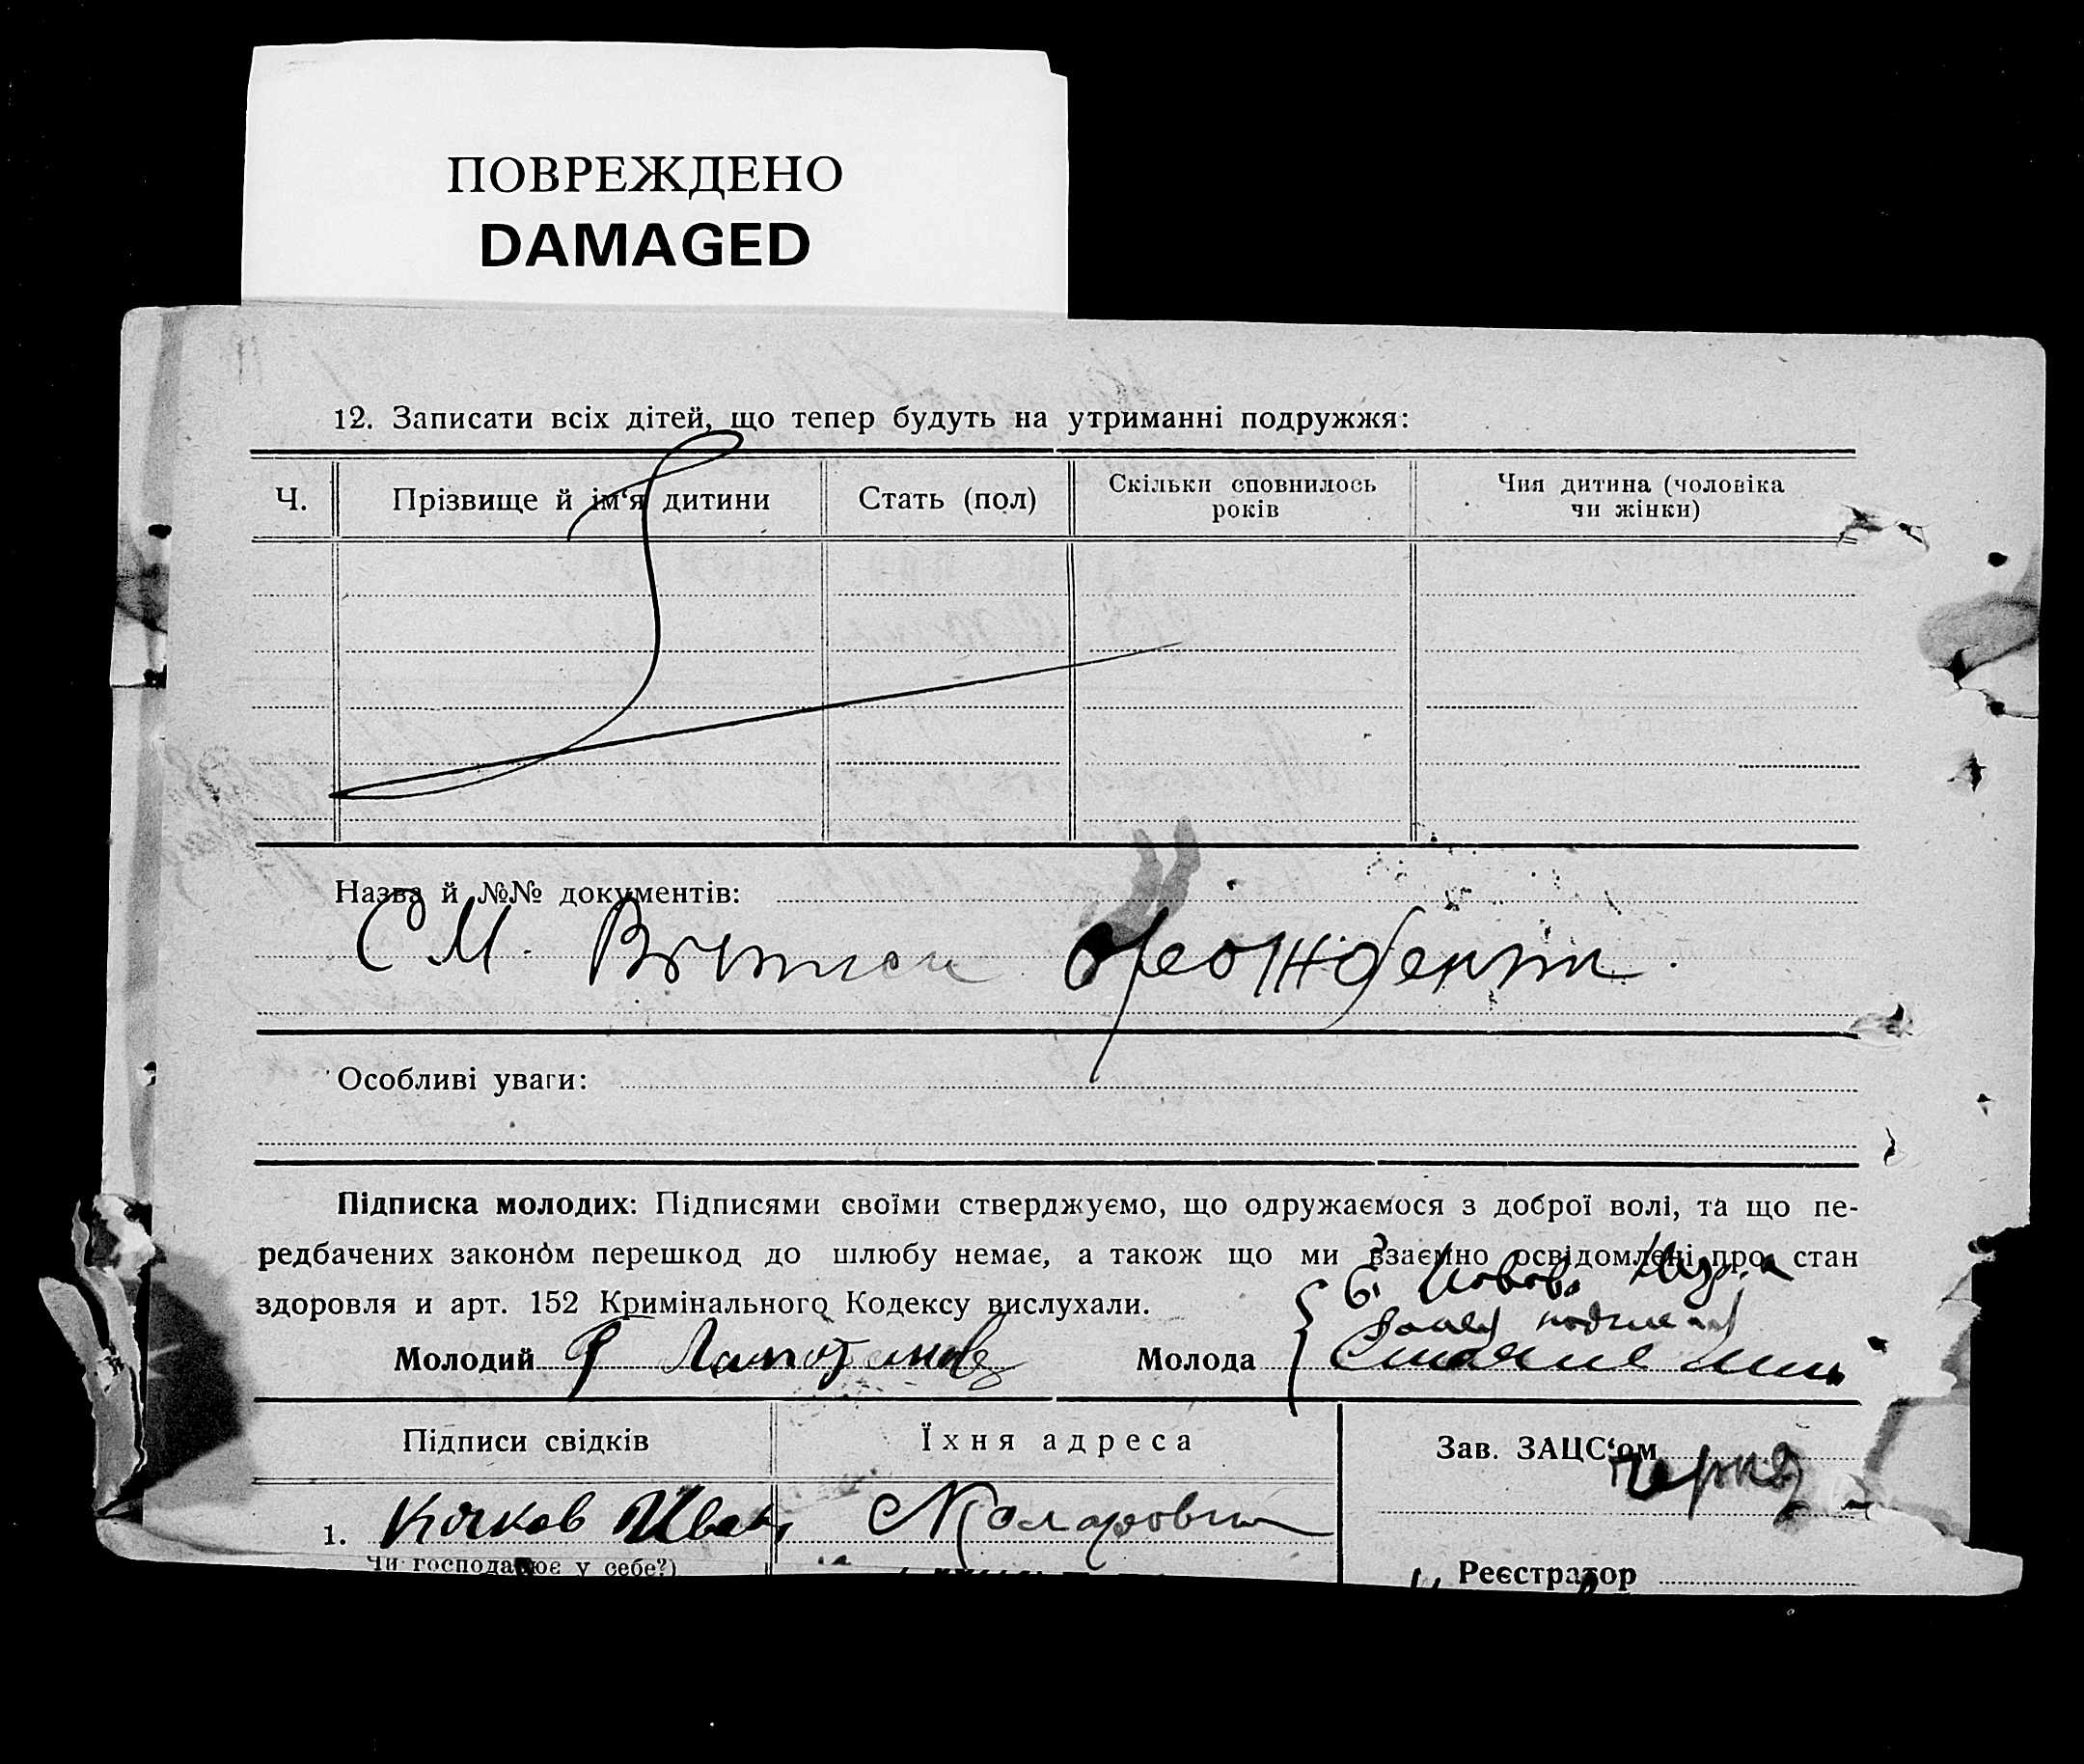 ПОВРЕЖДЕНО
DAMAGED
12. Записати всіх дітей, що тепер будуть на утриманні подружжя:
Ч. Прізвище й ім‘я дитини Стать (пол) Скільки сповнилось років Чия дитина (чоловіка чи жінки)
Назва й №№ документів:
СМ. о рождении.
Особливі уваги:
Підписка молодих: Підписями своїми стверджуємо, що одружаємося з доброї волі, та що пе-
редбачених законом перешкод до шлюбу немає, а також що ми взаємно освідомлені про стан
здоровля и арт. 152 Кримінального Кодексу вислухали.
Молодий Молода
Підписи свідків Їхня адреса Зав. ЗАЦС‘ом
1. Иван
Чи господарює у себе?) Реєстратор